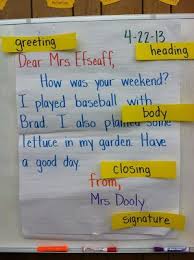 greeting
4-22-13
heading
Dear Mrs Efseaff,
How was your weekend?
I played baseball with
Brad. I also planted some
body
lettuce in my garden. Have
a good day.
closing
from,
Mrs Dooly
signature